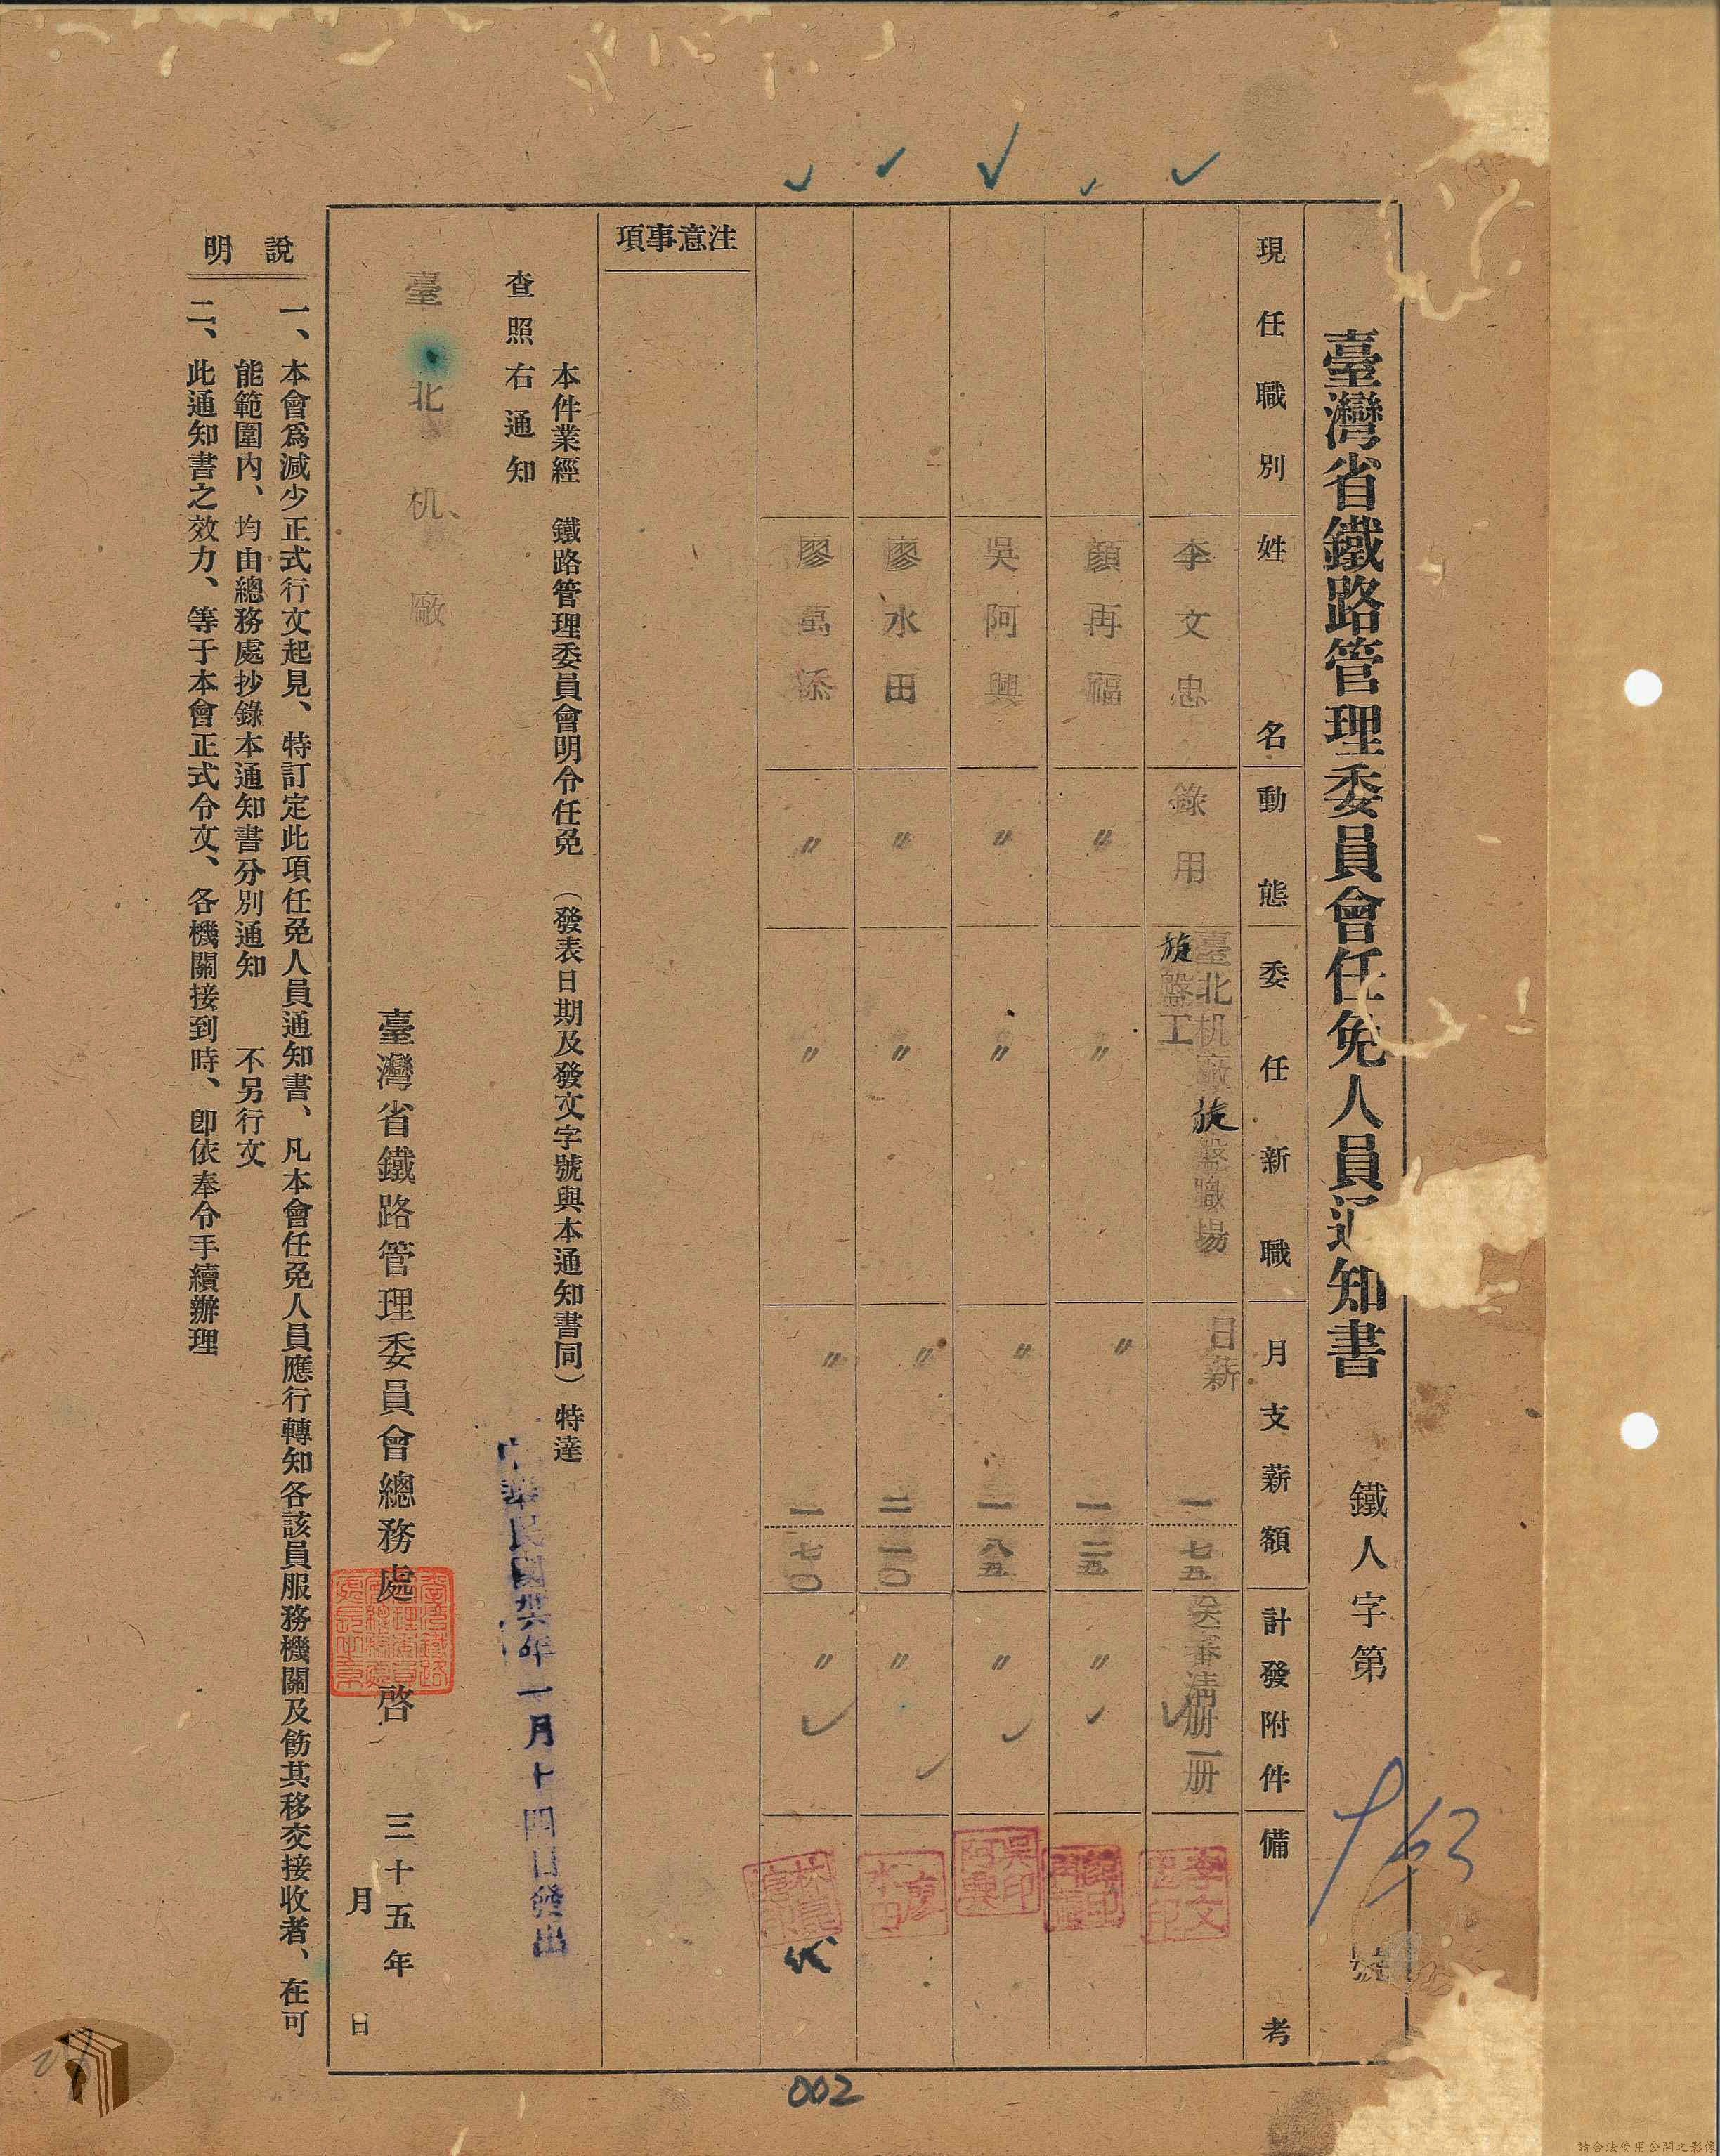 臺灣省鐵路管理委員會任免人員通知書 鐵人字第 號
163
現任職別 姓名 動態 委任新職 月支薪額 計發附件 備考
李文忠 錄用 臺北机廠旋盤職場 旋盤工 日薪 一 七五 送審淸册一册
顏再福 〃 〃 〃 一 二五 〃
吳阿興 〃 〃 〃 一 八五 〃
廖水田 〃 〃 〃 二 一〇 〃
廖萬添 〃 〃 〃 一 七〇 〃 代
李文忠印
吳阿興印
廖水田
注意事項
本件業經 鐵路管理委員會明令任免 (發表日期及發文字號與本通知書同) 特達
查照右通知
中華民國卅六年一月十四日發出
臺北机廠
臺灣省鐵路管理委員會總務處 啓 三十五年 月 日
說明
一、本會爲減少正式行文起見、特訂定此項任免人員通知書、凡本會任免人員應行轉知各該員服務機關及飭其移交接收者、在可
能範圍內、均由總務處抄錄本通知書分別通知 不另行文
二、此通知書之效力、等于本會正式令文、各機關接到時、卽依奉令手續辦理
002
請合法使用公開之影像